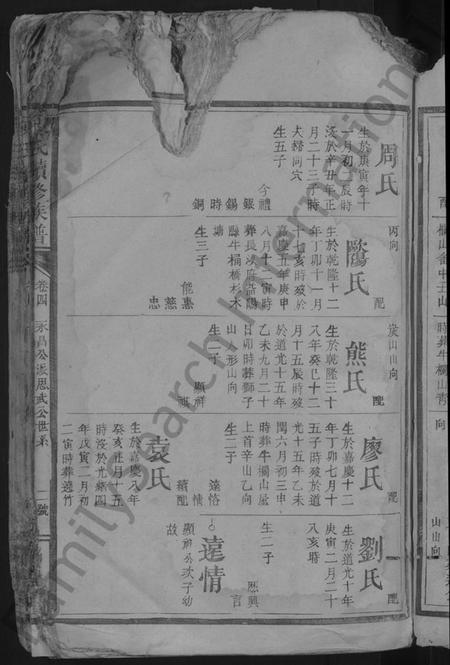 周氏
生於庚寅年十
一月初 辰時
歿於辛丑年正
月二十三子時
夫婦同穴
生五子
今禮
銀
錫
時
銅
丙向
配
鷗氏
生於乾隆十二
年丁卯十一月
十七亥時歿於
嘉慶五年庚申
八月十二寅時
葬長沙府益陽
縣牛橋橋杉木
塘
生三子
能惠
慈
忠
山山向
配
熊氏
生於乾隆三十
八年癸巳十二
月十五辰時歿
於道光十五年
乙未九月二十
日卯時葬獅子
山 形山向
生二子
顯祥
配
廖氏
生於嘉慶十二
年丁卯七月十
五子時歿於道
光十五年乙未
閏六月初三申
時葬牛欄山屋
上首辛山乙向
生二子
達恪
情
續配
袁氏
生於嘉慶八年
癸亥正月十五
時歿於光緒四
年戊寅二月初
二寅時葬達竹
配
劉氏
生於道光十年
庚寅二月二十
八亥時
生二子
歷興
言
達情
顯祥公次子幼
故
氏續修族譜
卷四
永昌公派思武公世系
二號
Family Search International